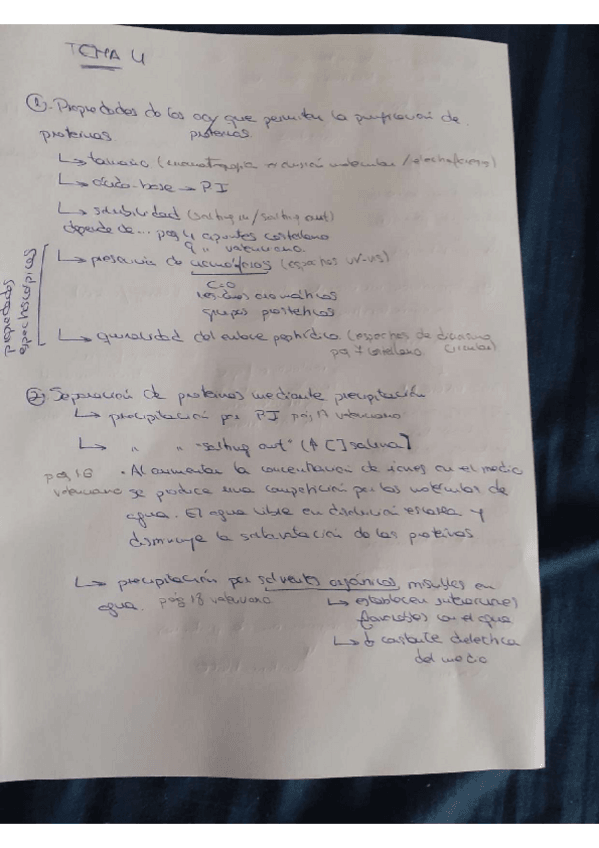 TEMA 4
①. Propiedades de los aa y que permiten la purificación de
proteínas proteínas
↳ tamaño (cromatografía exclusión molecular / electroforesis)
↳ ácido-base → PI
↳ solubilidad (salting in / salting out)
depende de... pag 4 apuntes castellano
9 " valenciano.
↳ presencia de cromóforos (espectros UV-VIS)
C=O
residuos aromáticos
grupos prostéticos
↳ quiralidad del enlace peptídico (espectros de dicroismo
pag 7 castellano circular)
Propiedades
espectroscópicas
② Separación de proteínas mediante precipitación
↳ precipitación por PI pág 17 valenciano
↳ " " "salting out" (↑ [ ] salina]
pág 16 • Al aumentar la concentración de iones en el medio
valenciano se produce una competición por las moléculas de
agua. El agua libre en disolución escasea y
disminuye la solvatación de las proteínas
↳ precipitación por solventes orgánicos miscibles en
agua. pág 18 valenciano
↳ establecen interacciones
favorables con el agua
↳ ↓ constante dieléctrica
del medio